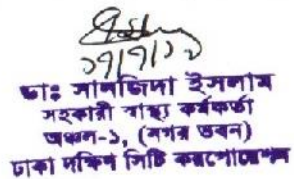 ১৭/৭/১৩
ডাঃ সানজিদা ইসলাম
সহকারী স্বাস্থ্য কর্মকর্তা
অঞ্চল-১, (নগর ভবন)
ঢাকা দক্ষিণ সিটি করপোরেশন